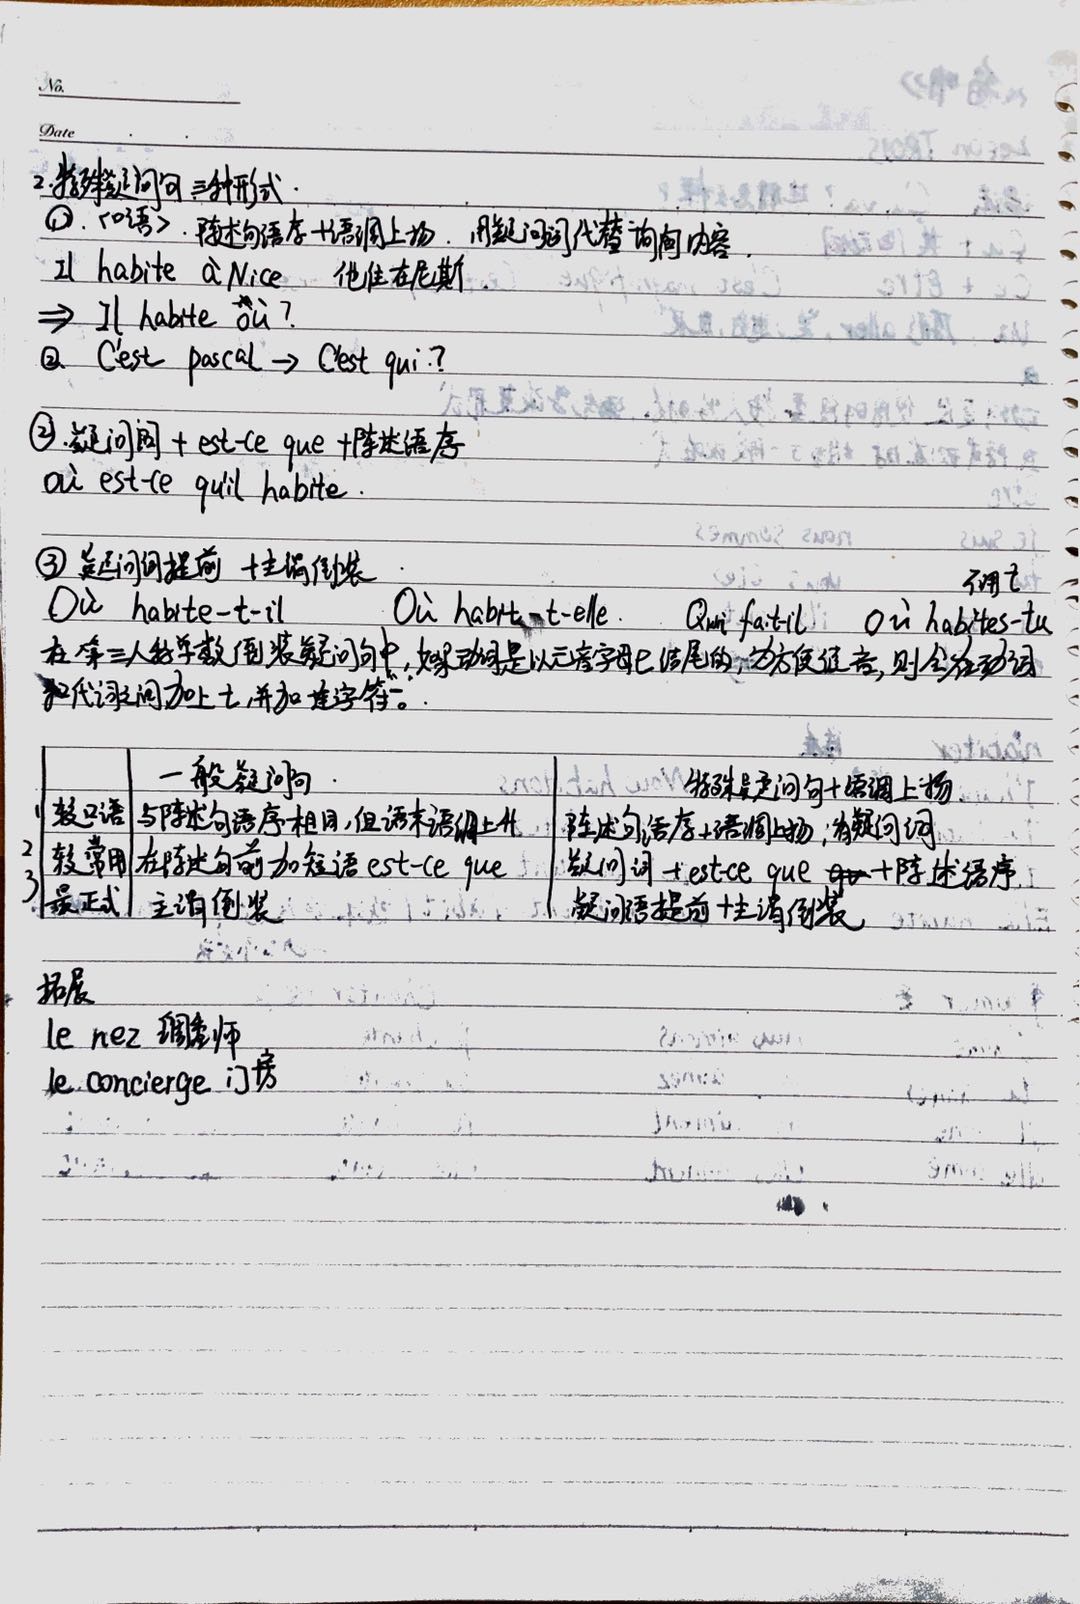 No.
Date
2.特殊疑问句 三种形式.
①.<口语>.陈述句语序+语调上扬.用疑问词代替询问内容.
Il habite à Nice 他住在尼斯.
⇒ Il habite où?
② C'est pascal → C'est qui?
②.疑问词+est-ce que+陈述语序
où est-ce qu'il habite.
③ 疑问词提前 +主谓倒装
不用t
Où habite-t-il Où habite-t-elle. Qui fait-il Où habites-tu
在第三人称单数倒装疑问句中,如果动词是以元音字母e结尾的,为方便发音,则会在动词
和代词之间加上t,并加连字符"-"。
一般疑问句 特殊疑问句+语调上扬
1 较口语 与陈述句语序相同,但语末语调上升 陈述句语序+语调上扬,有疑问词
2 较常用 在陈述句前加短语est-ce que 疑问词+est-ce que +陈述语序.
3 最正式 主谓倒装 疑问语提前+主谓倒装
拓展
le nez 调香师
le concierge 门房